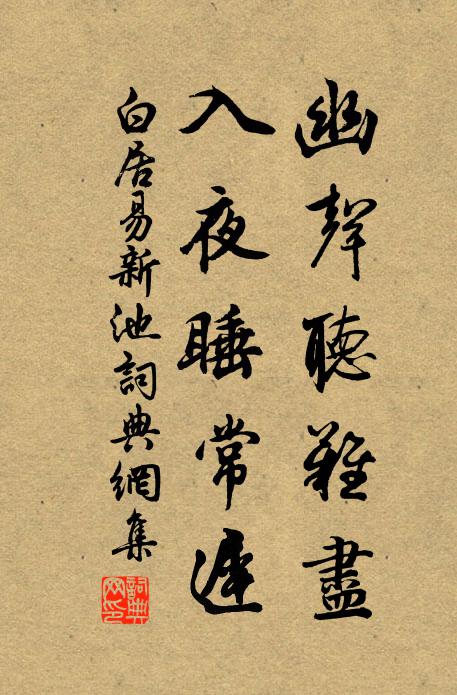 幽聲聽難盡
入夜睡常遲
白居易新池詞典網集
詞典网印